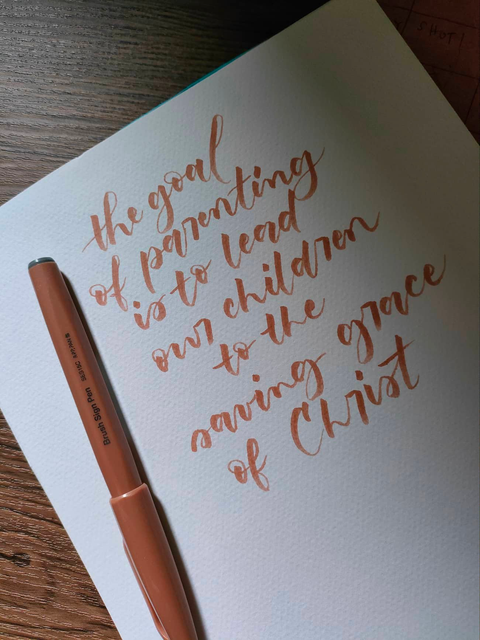 the goal
of parenting
is to lead
our children
to the
saving grace
of Christ
Brush Sign Pen
SHOT